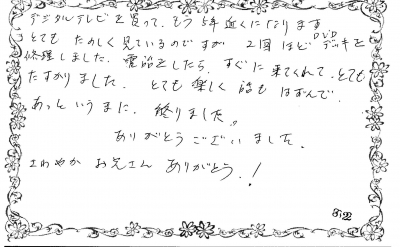 デジタルテレビを買って、もう5年近くになります
とても たのしく見ているのですが 2回ほどDVDデッキを
修理しました。電話をしたら、すぐに来てくれて、とても
たすかりました。 とても楽しく 話も はずんで、
あっというまに、終りました。
ありがとうございました。
さわやか お兄さん ありがとう、!